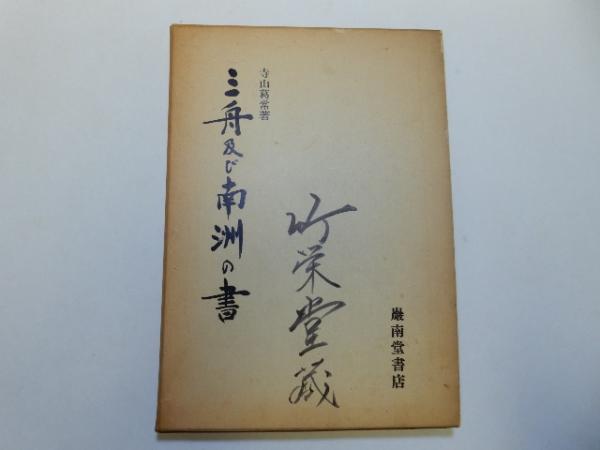 巖南堂書店
竹栄堂蔵
寺山葛常著
三舟及び南洲の書